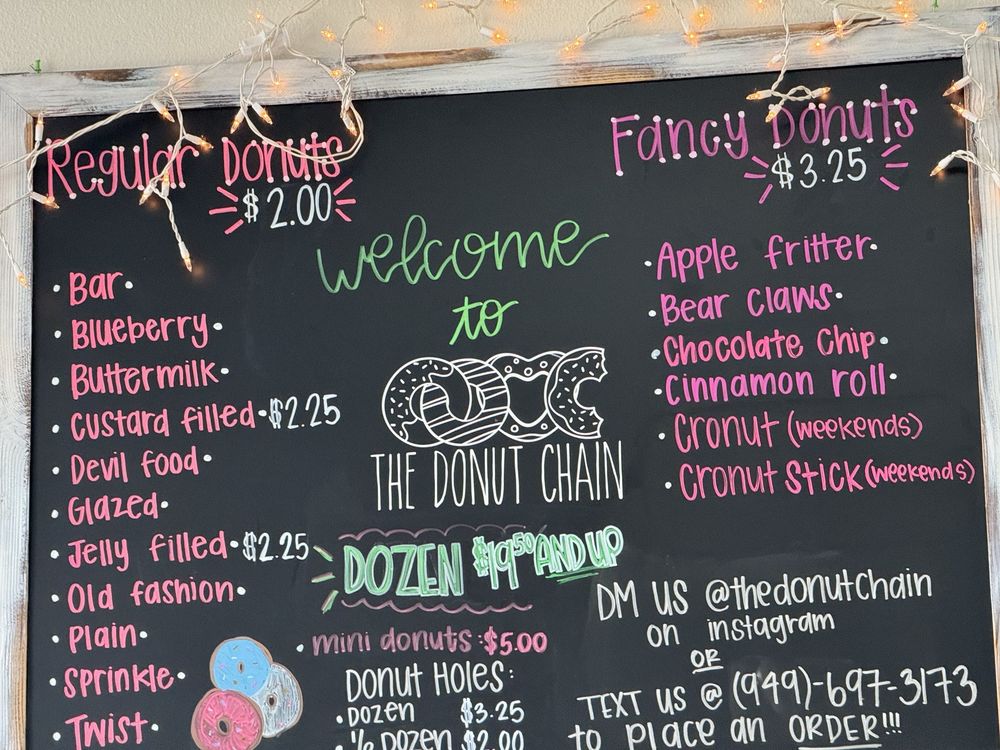 Regular Donuts
$2.00
• Bar •
• Blueberry •
• Buttermilk •
• Custard filled • $2.25
• Devil food •
• Glazed •
• Jelly filled • $2.25
• Old fashion •
• Plain •
• Sprinkle •
• Twist •
welcome
to
THE DONUT CHAIN
DOZEN $19.50 AND UP
• mini donuts: $5.00
Donut Holes:
• Dozen $3.25
• ½ Dozen $2.00
Fancy Donuts
$3.25
• Apple fritter •
• Bear claws •
• Chocolate Chip •
• Cinnamon roll •
• Cronut (weekends)
• Cronut Stick (weekends)
DM US @thedonutchain
on instagram
OR
TEXT US @ (949)-697-3173
to place an ORDER!!!